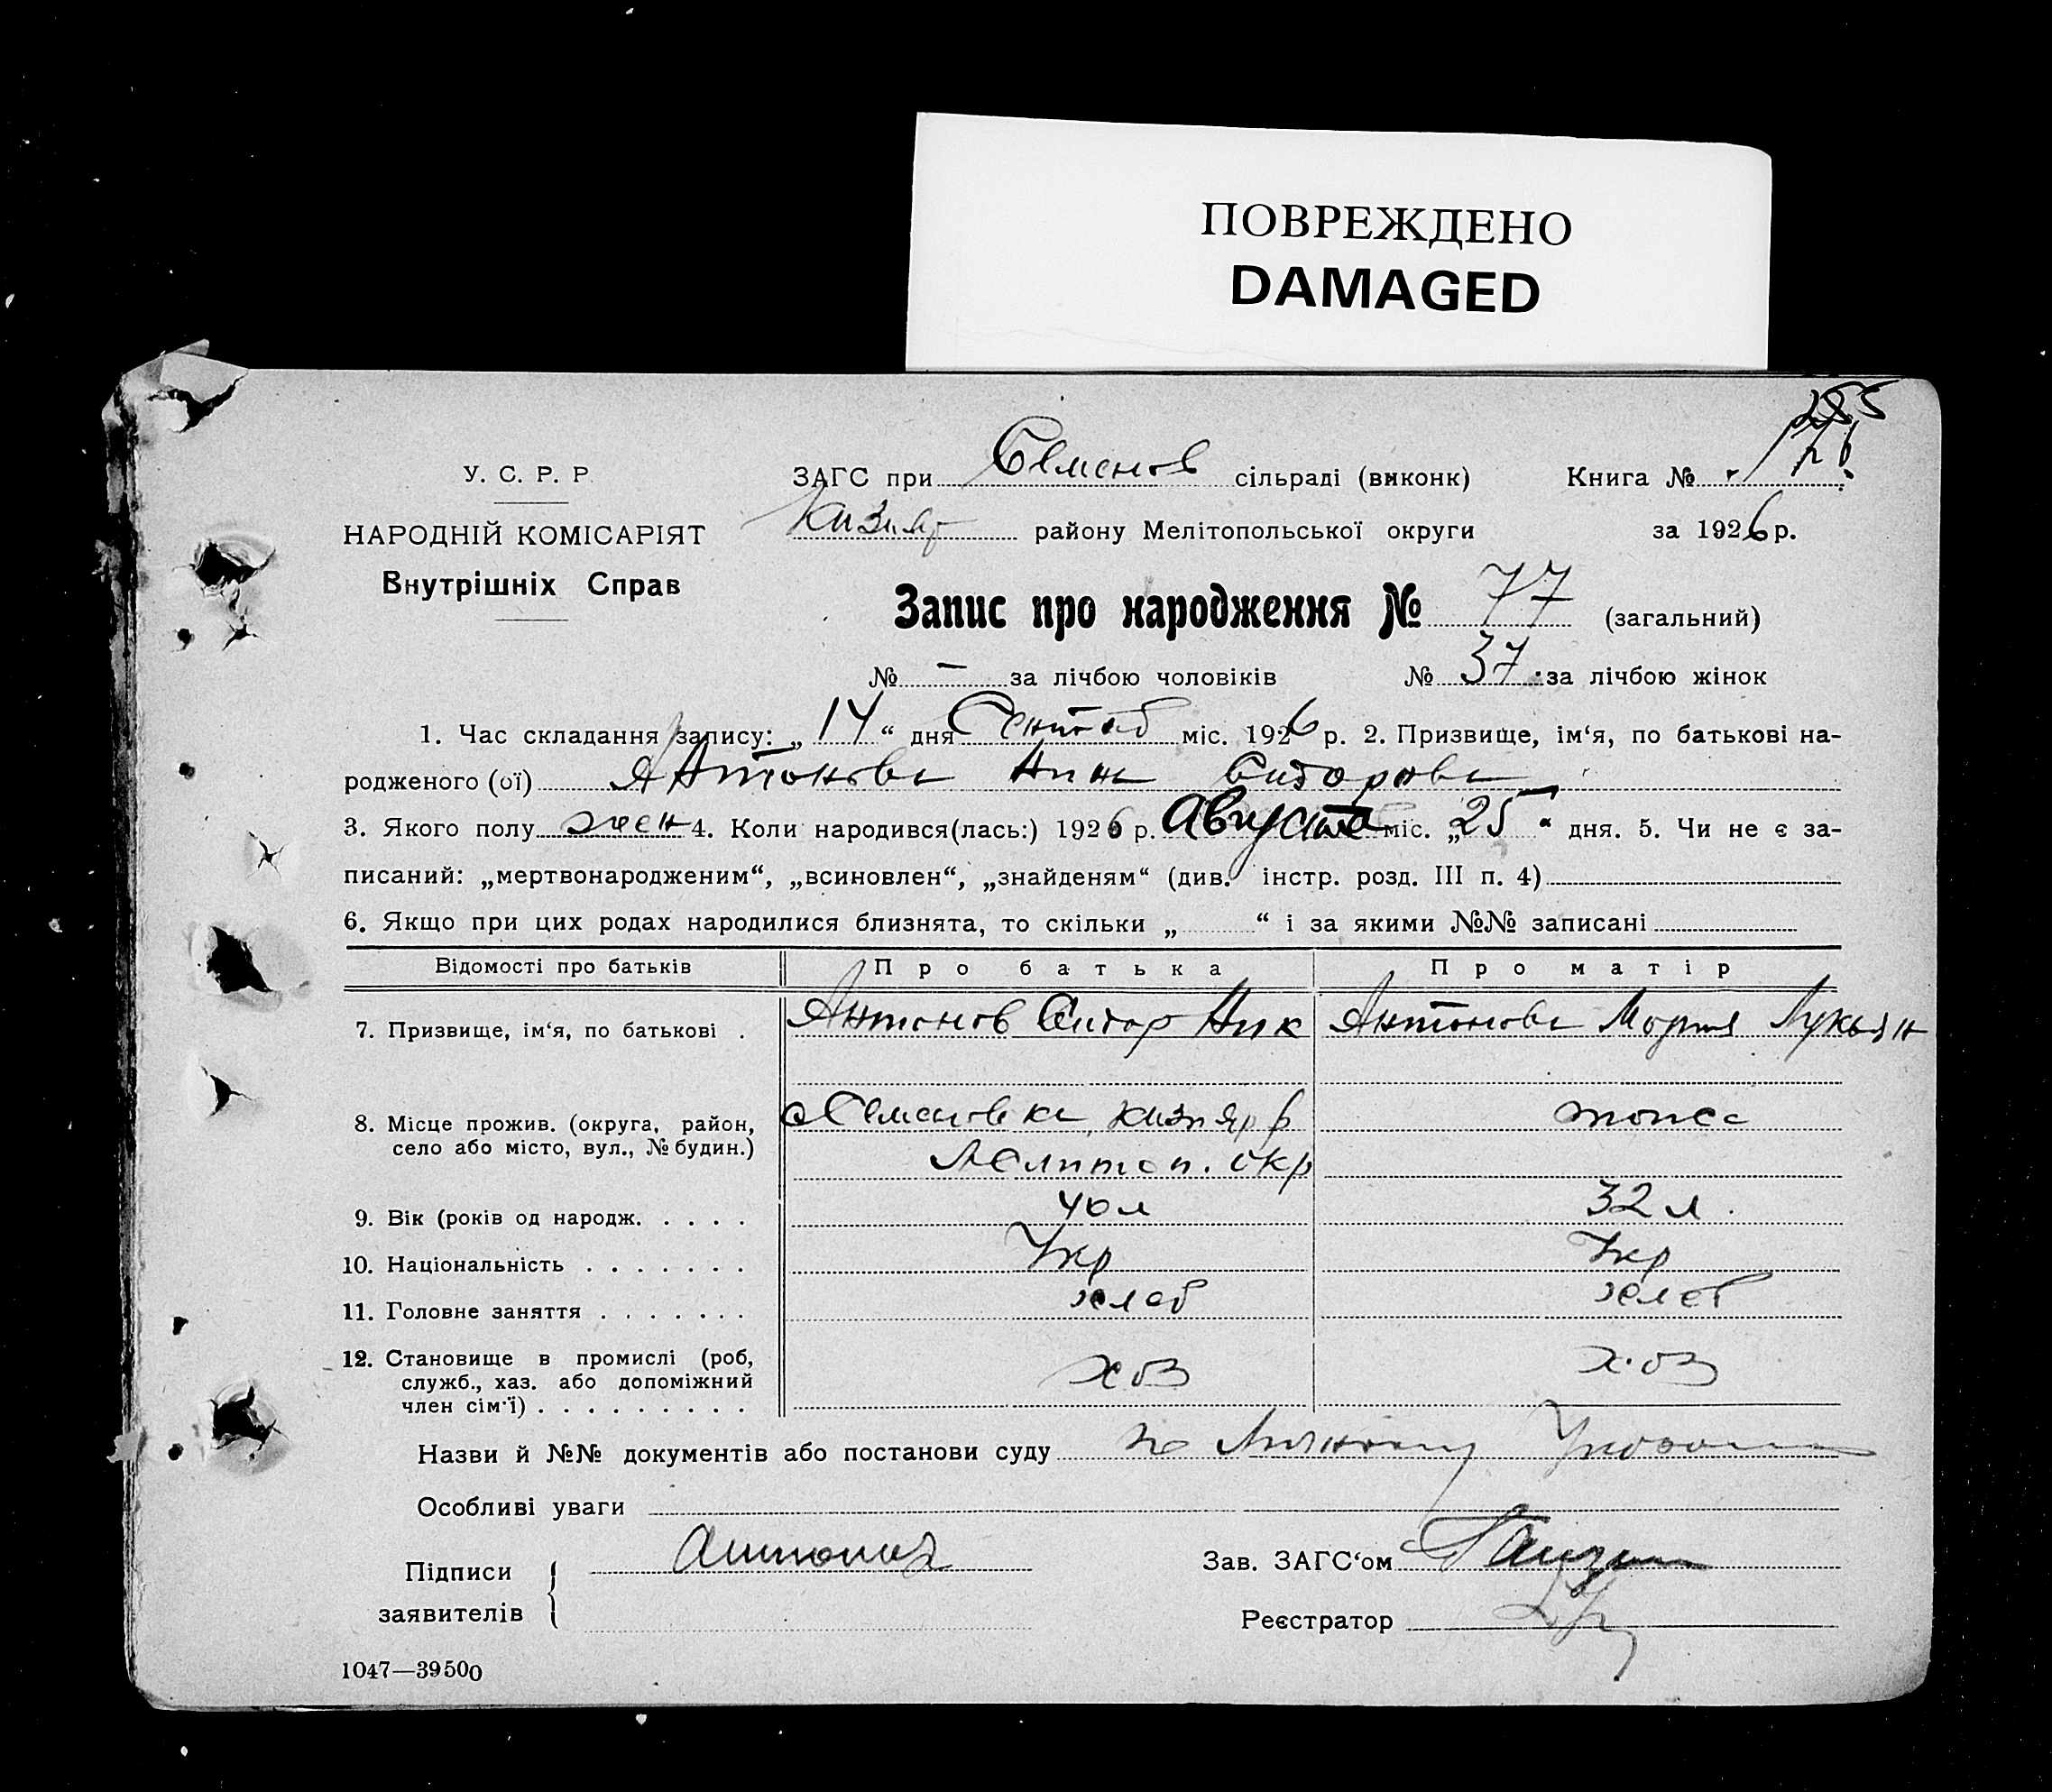 ПОВРЕЖДЕНО
DAMAGED
255
У. С. Р. Р
ЗАГС при Семенов сільраді (виконк) Книга №
НАРОДНІЙ КОМІСАРІЯТ
Кизияр району Мелітопольської округи за 1926 р.
Внутрішніх Справ
Запис про народження № 77 (загальний)
№ — за лічбою чоловіків № 37 за лічбою жінок
1. Час складання запису: „ 14 “ дня Сентяб міс. 1926 р. 2. Призвище, ім‘я, по батькові на-
родженого (ої) Антонова Анна Сидорова
3. Якого полу жен 4. Коли народився(лась:) 1926 р. Августа міс. „ 25 “ дня. 5. Чи не є за-
писаний: „мертвонародженим“, „всиновлен“, „знайденям“ (див. інстр. розд. III п. 4)
6. Якщо при цих родах народилися близнята, то скільки „ “ і за якими №№ записані
Відомості про батьків Про батька Про матір
7. Призвище, ім‘я, по батькові . Антонов Сидор Ник Антонова Мария Лукьян
8. Місце прожив. (округа, район, Семеновка, Кизияр р тоже
село або місто, вул., № будин.) Мелитоп. окр
9. Вік (років од народж. . . . . 40 л 32 л.
10. Національність . . . . . . . Укр Укр
11. Головне заняття . . . . . . . хлеб хлеб
12. Становище в промислі (роб, хоз хоз
служб., хаз. або допоміжний
член сім‘ї) . . . . . . . . .
Назви й №№ документів або постанови суду по Личному
Особливі уваги
Підписи Антонов Зав. ЗАГС‘ом
заявителів Реєстратор
1047—39500